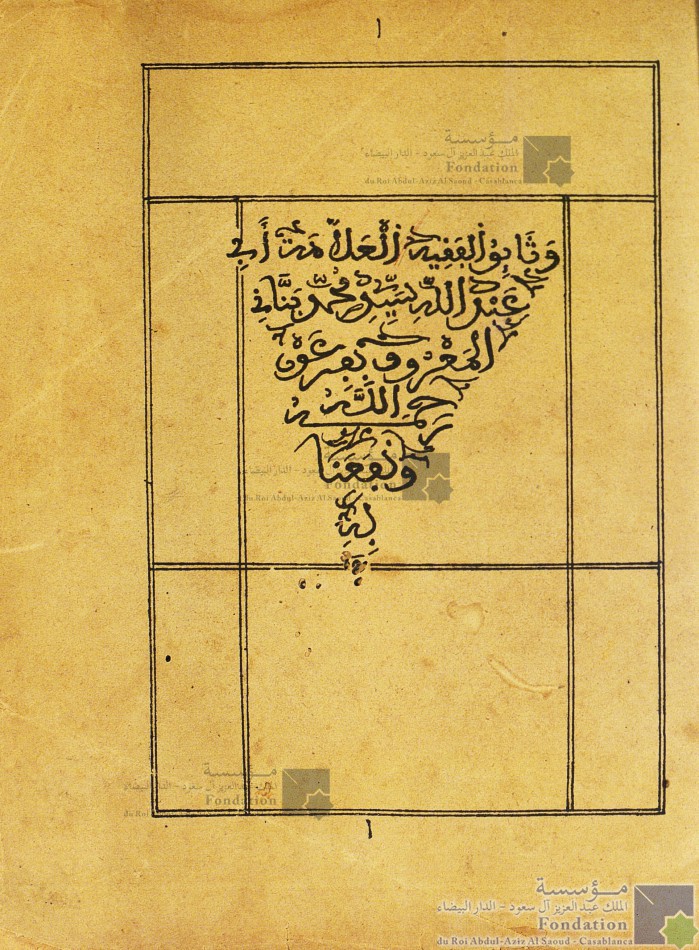 ١
مؤسسة
الملك عبد العزيز آل سعود - الدار البيضاء
Fondation
du Roi Abdul-Aziz Al Saoud - Casablanca
وَثَايِقُ الفَقِيهِ العَلَّامَة أَبِي
عَبْدِ اللَّهِ سَيِّدِي مُحَمَّد بَنَّانِي
المَعْرُوف بفرعون
رحمه اللَّه
وَنَفَعَنَا
بِه
مؤسسة
الملك عبد العزيز آل سعود - الدار البيضاء
Fondation
du Roi Abdul-Aziz Al Saoud - Casablanca
مؤسسة
الملك عبد العزيز آل سعود - الدار البيضاء
Fondation
du Roi
١
مؤسسة
الملك عبد العزيز آل سعود - الدار البيضاء
Fondation
du Roi Abdul-Aziz Al Saoud - Casablanca